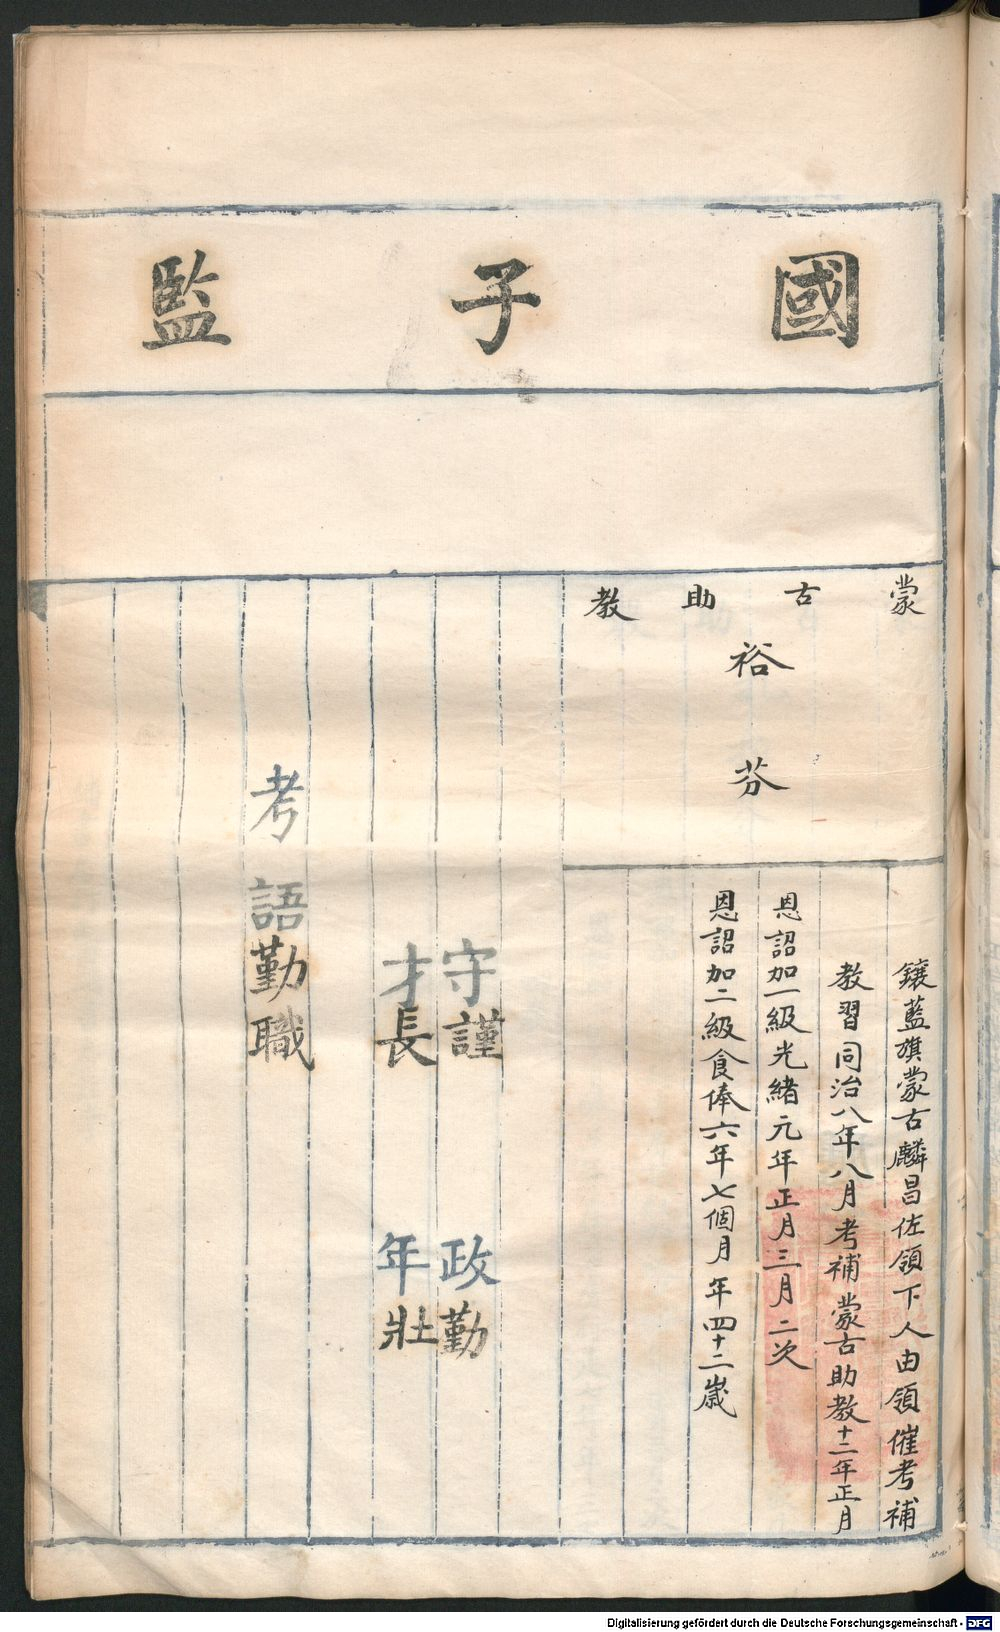 國子監
蒙古助教
裕芬
鑲藍旗蒙古麟昌佐領下人由領催考補
教習同治八年八月考補蒙古助教十二年正月
恩詔加一級光緒元年正月三月二次
恩詔加二級食俸六年七個月年四十二歲
守謹 政勤
才長 年壯
考語勤職
Digitalisierung gefördert durch die Deutsche Forschungsgemeinschaft - DFG